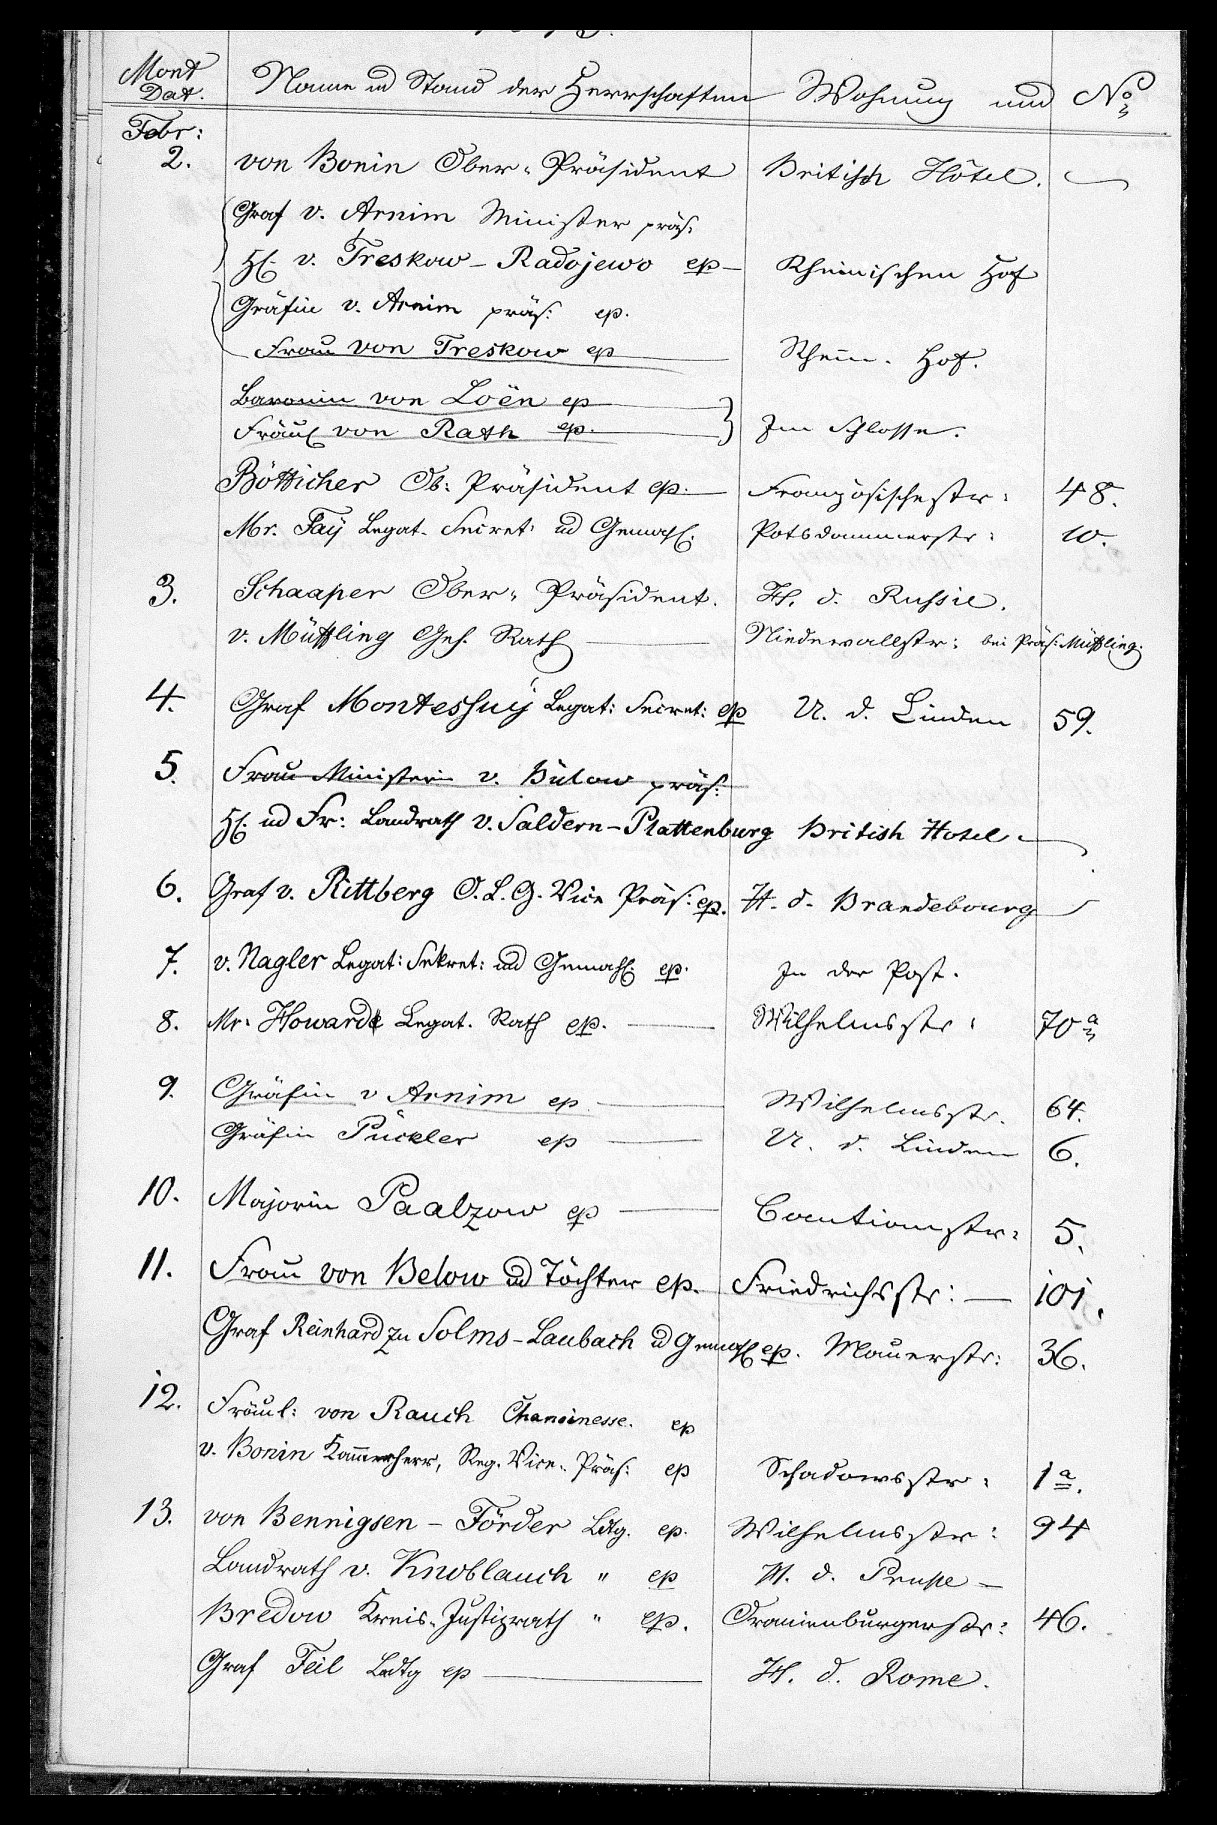 Mont Dat. Name ud Stand der Herrschaften Wohnung und No
Febr:
2. von Bonin Ober-Präsident British Hôtel.
Graf v. Arnim Minister präs:
H. v. Treskow-Radojewo ep Rheinischen Hof
Gräfin v. Arnim präs: ep.
Frau von Treskow ep Rhein. Hof.
Baronin von Loën ep
Fräul von Rath ep. Im Schlosse.
Bötticher Ob: Präsident ep. Französischestr: 48.
Mr. Faÿ Legat. Secret: ud Gemahl. Potsdammerstr: 10.
3. Schaaper Ober-Präsident. H. d. Russie.
v. Müffling Geh. Rath Niederwallstr: bei Präs: Müffling.
4. Graf Montessuÿ Legat: Secret: ep U. d. Linden 59.
5. Frau Ministerin v. Bülow präs:
H. ud Fr: Landrath v. Saldern-Plattenburg British Hotel
6. Graf v. Rittberg O. L. G. Vice Präs: ep. H. d. Brandebourg
7. v. Nagler Legat: Sekret: ud Gemahl. ep. In der Post.
8. Mr. Howard Legat. Rath ep. Wilhelmsstr: 70 a
9. Gräfin v Arnim ep Wilhelmsstr. 64.
Gräfin Pückler ep U. d. Linden 6.
10. Majorin Paalzow ep Cantianstr: 5.
11. Frau von Below ud Töchter ep. Friedrichsstr: 101.
Graf Reinhard zu Solms-Laubach ud Gemahl ep. Mauerstr: 36.
12. Fräul: von Rauch Chanoinesse. ep
v. Bonin Kammerherr, Reg. Vice-Präs: ep Schadowsstr: 1 a.
13. von Bennigsen-Förder Ldtg. ep. Wilhelmsstr: 94
Landrath v. Knoblauch " ep H. d. Prusse
Bredow Kreis-Justizrath " ep. Oranienburgerstr: 46.
Graf Feil Ldtg ep H. d. Rome.